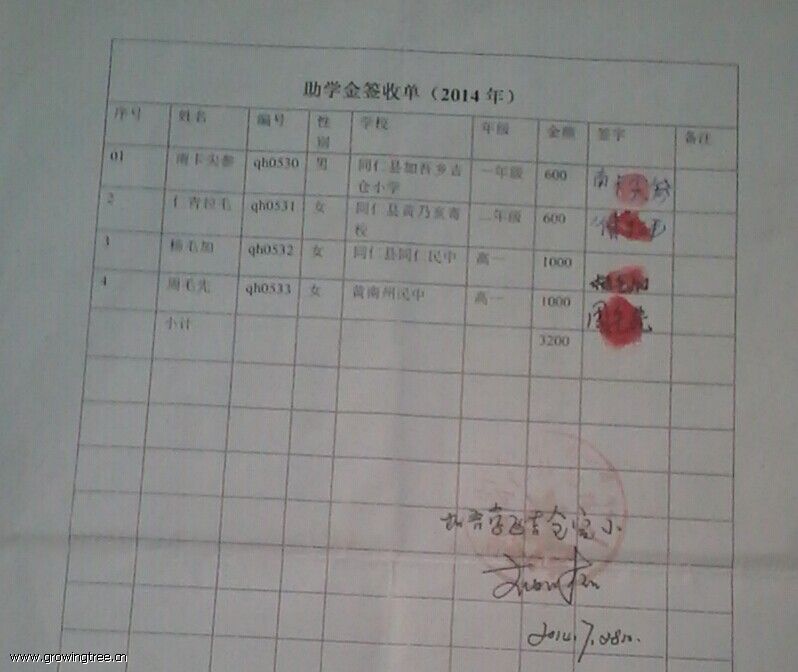 助学金签收单（2014 年）
序号 姓名 编号 性别 学校 年级 金额 签字 备注
01 南卡尖参 qh0530 男 同仁县加吾乡吉仓小学 一年级 600
2 仁青拉毛 qh0531 女 同仁县黄乃亥寄校 二年级 600
3 杨毛加 qh0532 女 同仁县同仁民中 高一 1000
4 周毛先 qh0533 女 黄南州民中 高一 1000 周毛先
小计 3200
吉仓完小
2014.7.28
www.growingtree.cn